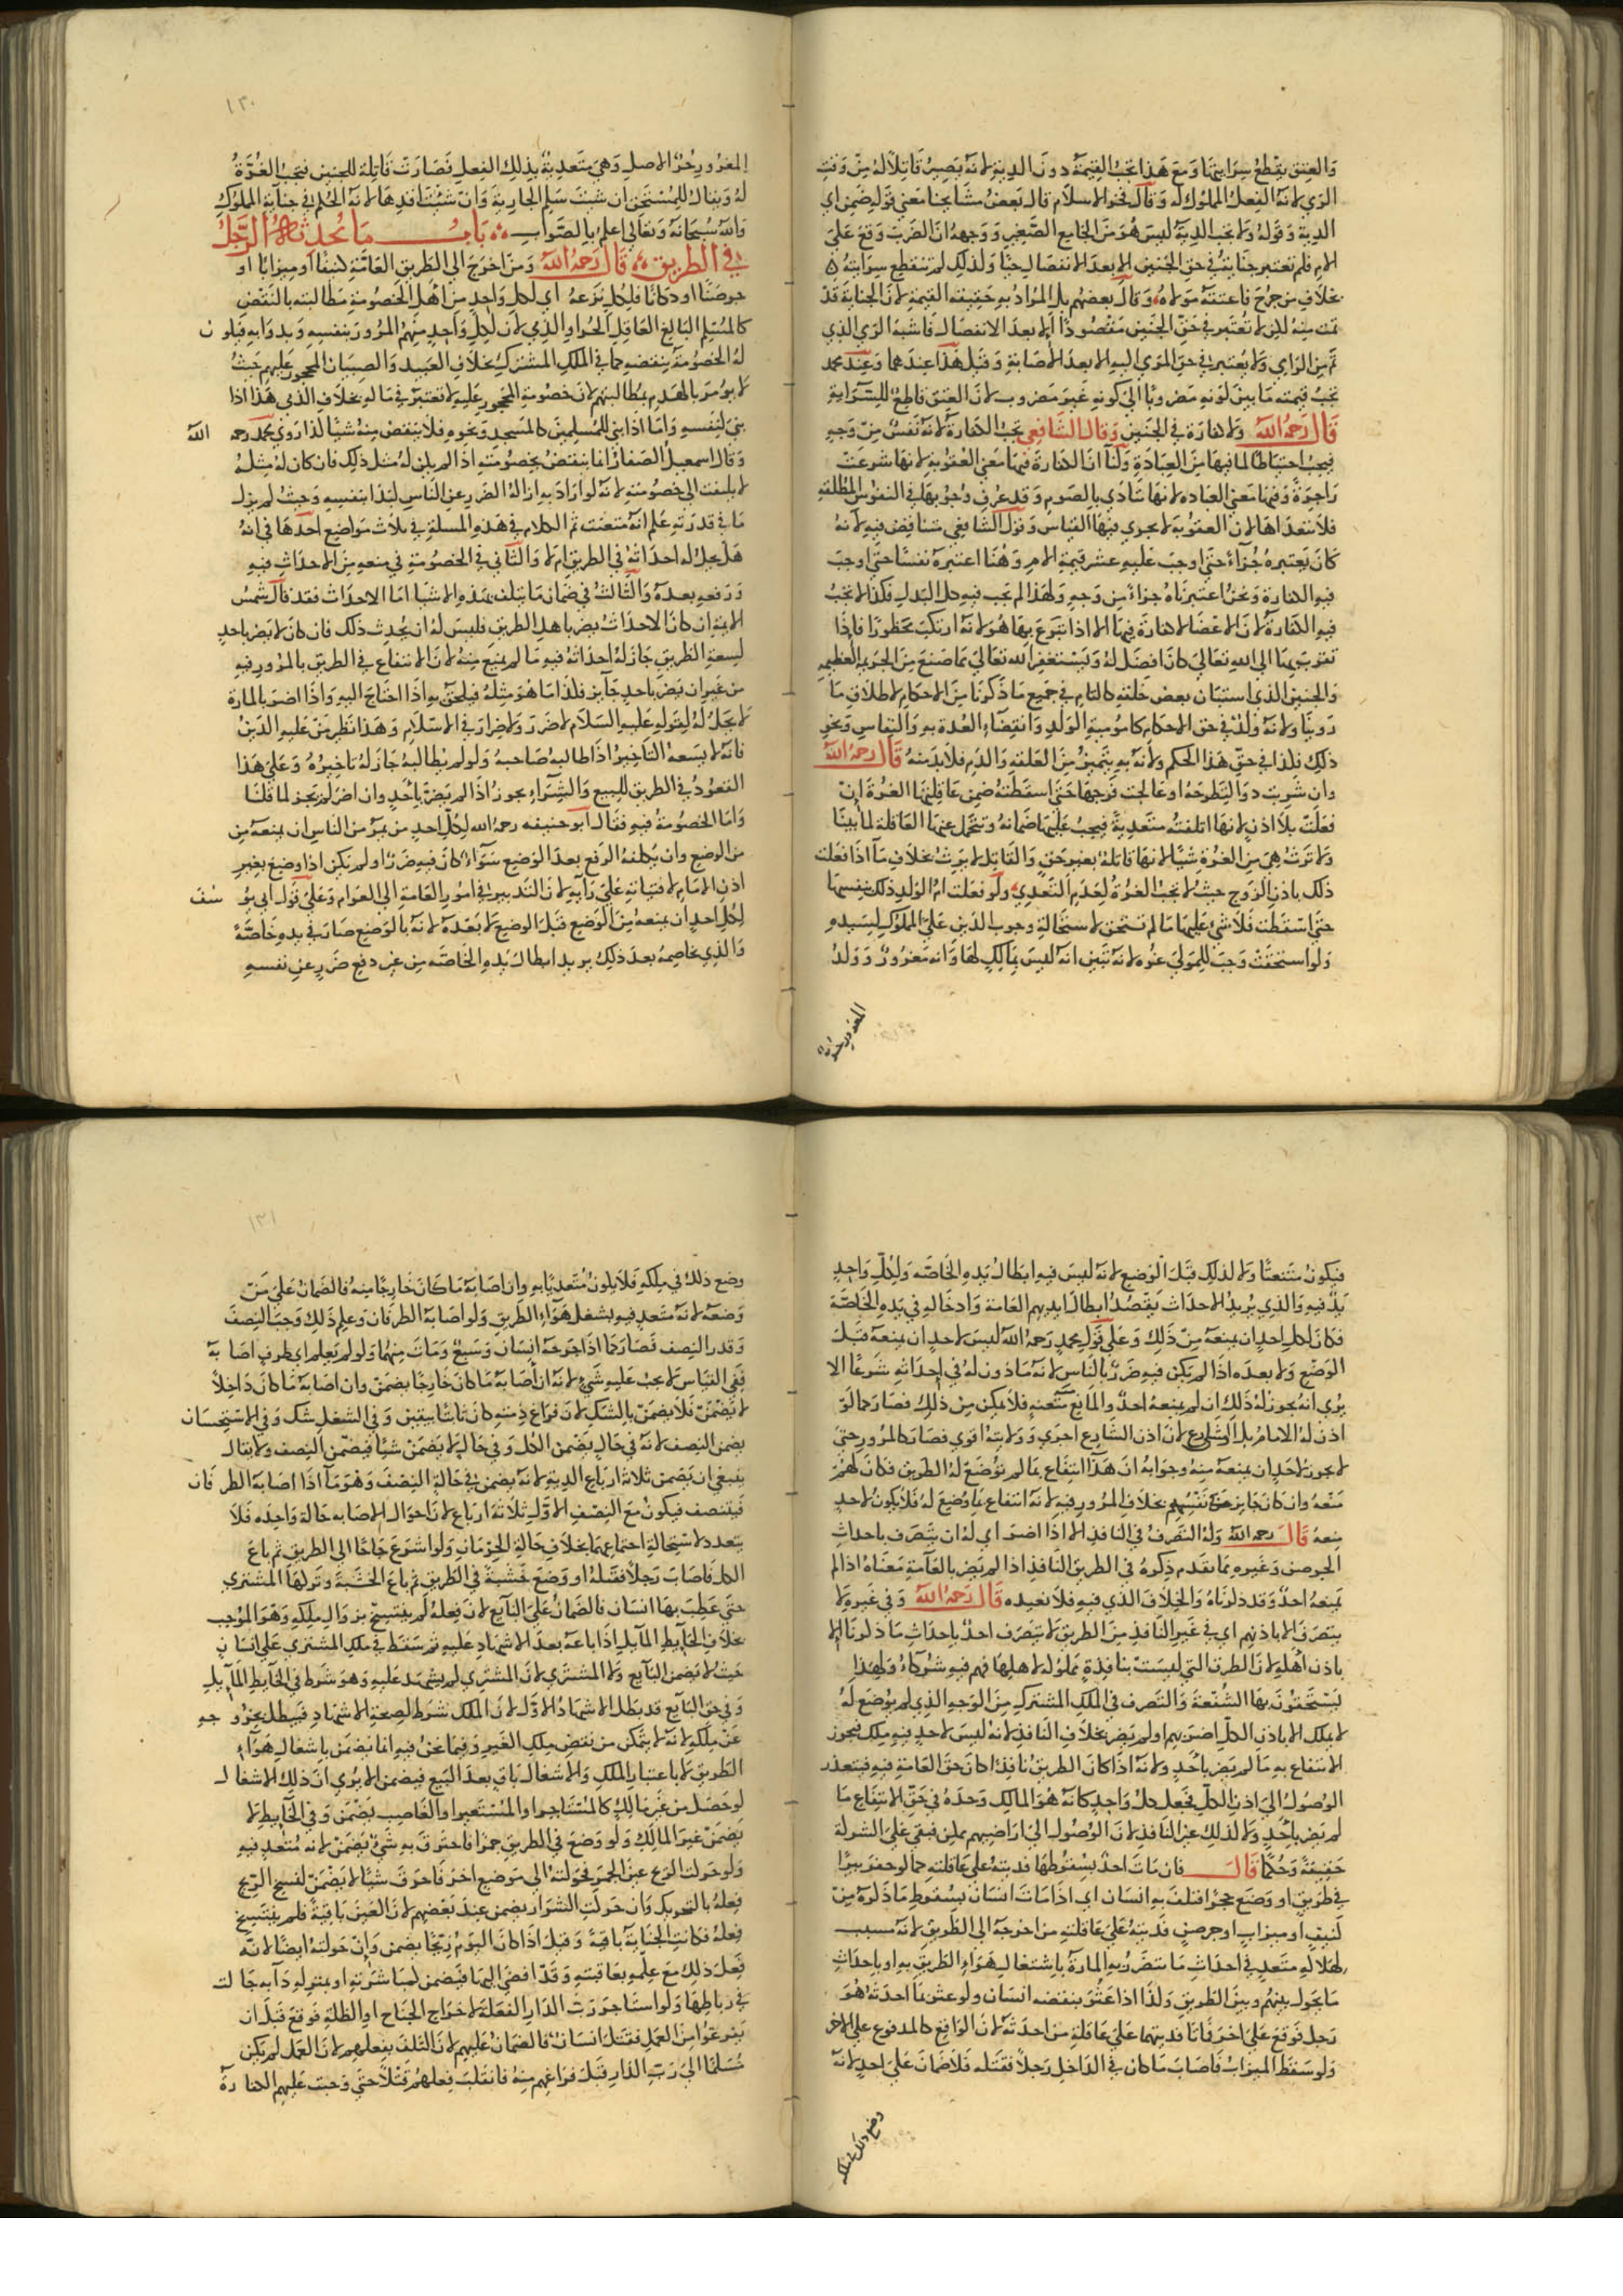 والعتق يقطع سرايتها ومع هذا تجب القيمة دون الدية لانه يصير قاتلا له من وقت
الرمي لانه الفعل المملوك له وقال فخر الاسلام قال بعض مشايخنا معنى قوله ضمن اي
الدية وقوله ولا تجب الدية ليس هو من الجامع الصغير ووجهه ان الضرب وقع على
الام فلم تعتبر جنايته في حق الجنين الا بعد الانفصال حيا ولذلك لم تنقطع سرايته
بخلاف من جرح فاعتقه مولاه وقال بعضهم بل المراد به حقيقة القيمة لان الجناية قد
تمت منه لكن لا تعتبر في حق الجنين مقصودا الا بعد الانفصال فاشبه الرمي الذي
تم من الرامي ولا يعتبر في حق المرمي اليه الا بعد الاصابة وقيل هذا عندهما وعند محمد
تجب قيمته ما بين كونه مضروبا الى كونه غير مضروب لان العتق قاطع للسراية
قال رحمه الله ولا كفارة في الجنين وقال الشافعي تجب الكفارة لانه نفس من وجه
فيجب احتياطا لما فيها من العبادة ولنا ان الكفارة فيها معنى العقوبة لانها شرعت
زاجرة وفيها معنى العباده لانها تتادى بالصوم وقد عرف وجوبها في النفوس المطلقة
فلا تتعداها لان العقوبة لا يجري فيها القياس وقول الشافعي متناقض فيه لانه
كان يعتبره جزأ حتى اوجب عليه عشر قيمة الام وهنا اعتبره نفسا حتى اوجب
فيه الكفارة ونحن اعتبرناه جزأ من وجه ولهذا لم تجب فيه كل البدل فكذا لا تجب
فيه الكفارة لان الاعضا لا كفارة فيها الا اذا تبرع بها هو لانه ارتكب محظورا فاذا
تقرب بها الى الله تعالى كان افضل له ويستغفر الله تعالى مما صنع من الجريمة العظيمه
والجنين الذي استبان بعض خلقه كالتام في جميع ما ذكرنا من الاحكام لاطلاق ما
روينا ولانه ولد في حق الاحكام كامومية الولد وانقضاء العدة به والنفاس ونحو
ذلك فكذا في حق هذا الحكم ولانه به يتميز من العلقة والدم فلا بد منه قال رحمه الله
وان شربت دوا لتطرحه او عالجت فرجها حتى اسقطته ضمن عاقلتها الغرة ان
فعلت بلا اذن لانها اتلفته متعدية فيجب عليها ضمانه وتتحمل عنها العاقلة لما بينا
ولا ترث هي من الغرة شيئا لانها قاتلة بغير حق والقاتل لا يرث بخلاف ما اذا فعلت
ذلك باذن الزوج حيث لا تجب الغرة لعدم التعدي ولو فعلت ام الولد ذلك بنفسها
حتى اسقطت فلا شئ عليها ما لم تستحق لاستحالة وجوب الدين على المملوك لسيده
ولو استحقت وجب للمولى غره لانه تبين انه ليس بمالك لها وانه مغرور وولد
المغرور حر
١٣٠
المغرور حر بالاصل وهي متعدية بذلك الفعل فصارت قاتلة للجنين فتجب الغرة
له ويقال للمستحق ان شئت سلم الجارية وان شئت افدها لانه الحكم في جناية المملوك
والله سبحانه وتعالى اعلم بالصواب باب ما يحدثه الرجل
في الطريق قال رحمه الله ومن اخرج الى الطريق العامة كنيفا او ميزابا او
جرصنا او دكانا فلكل نزعه اي لكل واحد من اهل الخصومة مطالبته بالنقض
كالمسلم البالغ العاقل الحر او الذمي لان لكل واحد منهم المرور بنفسه وبدوابه فيكون
له الخصومة بنقضه كما في الملك المشترك بخلاف العبيد والصبيان المحجور عليهم حيث
لا يومر بالهدم بمطالبتهم لان خصومة المحجور عليه لا تعتبر في ماله بخلاف الذمي هذا اذا
بنى لنفسه واما اذا بنى للمسلمين كالمسجد ونحوه فلا ينقض منه شيا كذا روي محمد رحمه الله
وقال اسمعيل الصفار انما ينقض بخصومته اذا لم يكن له مثل ذلك فان كان له مثله
لا يلتفت الى خصومته لانه لو اراد به ازالة الضرر عن الناس لبدا بنفسه وحيث لم يزل
ما في قدرته علم انه متعنت ثم الكلام في هذه المسلة في ثلاث مواضع احدها في انه
هل يحل له احداثه في الطريق ام لا والثاني في الخصومة في منعه من الاحداث فيه
ورفعه بعده والثالث في ضمان ما يتلف بهذه الاشيا اما الاحداث فقد قال شمس
الايمة ان كان الاحداث يضر باهل الطريق فليس له ان يحدث ذلك فان كان لا يضر باحد
لسعة الطريق جاز له احداثه فيه ما لم يمنع منه لان الانتفاع في الطريق بالمرور فيه
من غير ان يضر باحد جايز فكذا ما هو مثله فيلحق به اذا احتاج اليه واذا اضر بالمارة
لا يحل له لقوله عليه السلام لا ضرر ولا ضرار في الاسلام وهذا نظير من عليه الدين
فانه لا يسعه التاخير اذا طالبه صاحبه ولو لم يطالبه جاز له تاخيره وعلى هذا
القعود في الطريق للبيع والشراء يجوز اذا لم يضر باحد وان اضر لم يجز لما قلنا
واما الخصومة فيه فقال ابو حنيفه رحمه الله لكل احد من عرض الناس ان يمنعه من
من الوضع وان يكلفه الرفع بعد الوضع سواء كان فيه ضرر او لم يكن اذا وضع بغير
اذن الامام لافتياته على رايه لان التدبير في امور العامة الى العوام وعلى قول ابي يوسف
لكل احد ان يمنعه من الوضع قبل الوضع لا بعده لانه بالوضع صار في يده خاصة
والذي يخاصمه بعد ذلك يريد ابطال يده الخاصه من غير دفع ضرر عن نفسه
فيكون متعنتا ولا كذلك قبل الوضع لانه ليس فيه ابطال يده الخاصه ولكل واحد
يد فيه والذي يريد الاحداث يقصد ابطال ايديهم العامة وادخاله في يده الخاصة
فكان لكل احد ان يمنعه من ذلك وعلى قول محمد رحمه الله ليس لاحد ان يمنعه قبل
الوضع ولا بعده اذا لم يكن فيه ضرر بالناس لانه ماذون له في احداثه شرعا الا
يرى انه يجوز له ذلك ان لم يمنعه احد والمانع متعنت فلا يمكن من ذلك فصار كما لو
اذن له الامام بل اولى لان اذن الشارع احرى وولايته اقوى فصار كالمرور حتى
لا يجوز لاحد ان يمنعه منه وجوابه ان هذا انتفاع بما لم توضع له الطريق فكان لهم
منعه وان كان جايزا في نفسه بخلاف المرور فيه لانه انتفاع بما وضع له فلا يكون لاحد
منعه قال رحمه الله وله التصرف في النافذ الا اذا اضر اي له ان يتصرف باحداث
الجرصن وغيره مما تقدم ذكره في الطريق النافذ اذا لم يضر بالعامة معناه اذا لم
يمنعه احد وقد ذكرناه والخلاف الذي فيه فلا نعيده قال رحمه الله وفي غيره لا
يتصرف الا باذنهم اي في غير النافذ من الطريق لا يتصرف احد باحداث ما ذكرنا الا
باذن اهله لان الطرق التي ليست بنافذة مملوكة لاهلها فهم فيه شركاء ولهذا
يستحقون بها الشفعة والتصرف في الملك المشترك من الوجه الذي لم يوضع له
لا يملك الا باذن الكل اضر بهم او لم يضر بخلاف النافذ لانه ليس لاحد فيه ملك فيجوز
الانتفاع به ما لم يضر باحد ولانه اذا كان الطريق نافذا كان حق العامة فيه فيتعذر
الوصول الى اذن الكل فجعل كل واحد كانه هو المالك وحده في حق الانتفاع ما
لم يضر باحد ولا كذلك غير النافذ لان الوصول الى ارضائهم ممكن فبقي على الشركة
حقيقة وحكما قال فان مات احد بسقوطها فديته على عاقلته كما لو حفر بيرا
في طريق او وضع حجرا فتلف به انسان اي اذا مات انسان بسقوط ما ذكره من
كنيف او ميزاب او جرصن فديته على عاقلته من اخرجه الى الطريق لانه مسبب
لهلاكه متعد في احداث ما تتضرر به المارة باشتغال هواء الطريق به او باحداث
ما يحول بينهم وبين الطريق وكذا اذا عثر بنقضه انسان ولو عثر بما احدثه هو
رجل فوقع على اخر فماتا فديتهما على عاقلة من احدثه لان الواقع كالمدفوع على الاخر
ولو سقط الميزاب فاصاب ما كان في الداخل رجلا فقتله فلا ضمان على احد لانه
وضع ذلك في ملكه
١٣١
وضع ذلك في ملكه فلا يكون متعديا به وان اصابه ما كان خارجا منه فالضمان على من
وضعه لانه متعد فيه بشغل هواء الطريق ولو اصابه الطرفان وعلم ذلك وجب النصف
وهدر النصف فصار كما اذا جرحه انسان وسبع ومات منهما ولو لم يعلم اي طرف اصابه
ففي القياس لا يجب عليه شئ لانه ان اصابه ما كان خارجا يضمن وان اصابه ما كان داخلا
لا يضمن فلا يضمن بالشك لان فراغ ذمته كان ثابتا بيقين وفي الشغل شك وفي الاستحسان
يضمن النصف لانه في حال يضمن الكل وفي حال لا يضمن شيئا فيضمن النصف ولا يقال
ينبغي ان يضمن ثلاثة ارباع الدية لانه يضمن في حالة النصف وهو ما اذا اصابه الطرفان
فيتنصف فيكون مع النصف الاول ثلاثة ارباع لان احوال الاصابه حالة واحده فلا
يتعدد لاستحالة اجتماعهما بخلاف حالة الحرمان ولو اشرع جناحا الى الطريق ثم باع
الكل فاصاب رجلا فقتله او وضع خشبة في الطريق ثم باع الخشبة وتركها المشتري
حتى عطب بها انسان فالضمان على البايع لان فعله لم ينفسخ بزوال ملكه وهو الموجب
بخلاف الحايط المايل اذا باعه بعد الاشهاد عليه ثم سقط في ملك المشتري على انسان
حيث لا يضمن البايع ولا المشتري لان المشتري لم يشهد عليه وهو شرط في الحايط المايل
وفي حق البايع قد بطل الاشهاد الاول لان الملك شرط لصحة الاشهاد فيبطل بخروجه
عن ملكه لانه لا يتمكن من نقض ملك الغير وفيما نحن فيه انما يضمن باشغال هواء
الطريق لا باعتبار الملك والاشغال باق بعد البيع فيضمن الا يرى ان ذلك الاشغال
لو حصل من غير مالك كالمستاجر او المستعير او الغاصب يضمن وفي الحايط لا
يضمن غير المالك ولو وضع في الطريق جمرا فاحترق به شئ يضمن لانه متعد فيه
ولو حركت الريح عين الجمر فحولته الى موضع اخر فاحرق شيئا لا يضمن لفسخ الريح
فعله بالتحريك وان حركت الشرار يضمن عند بعضهم لان العين باقية فلم ينفسخ
فعله فكانت الجناية باقية وقيل اذا كان اليوم ريحا يضمن وان حولته ايضا لانه
فعل ذلك مع علمه بعاقبته وقد افضى اليها فيضمن لمباشرته او بمنزله دآبه جالت
في رباطها ولو استاجر رب الدار الفعلة لاخراج الجناح او الظلة فوقع قبل ان
يفرغوا من العمل فقتل انسانا فالضمان عليهم لان التلف بفعلهم لان العمل لم يكن
مسلما الى رب الدار قبل فراغهم منه فانقلب فعلهم قتلا حتى وجبت عليهم الكفارة